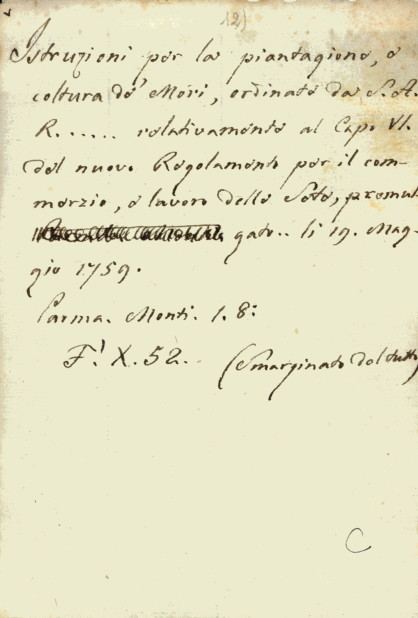 12)
Istruzioni per la piantagione, e
coltura de' Mori, ordinate da S. A.
R...... relativamente al Capo VI.
del nuovo Regolamento per il com-
merzio, e lavoro delle Sete, promul-
gato.. li 19. Mag-
gio 1759.
Parma. Monti. 1. 8:
F.' X. 52. (Smarginato del tutto)
C